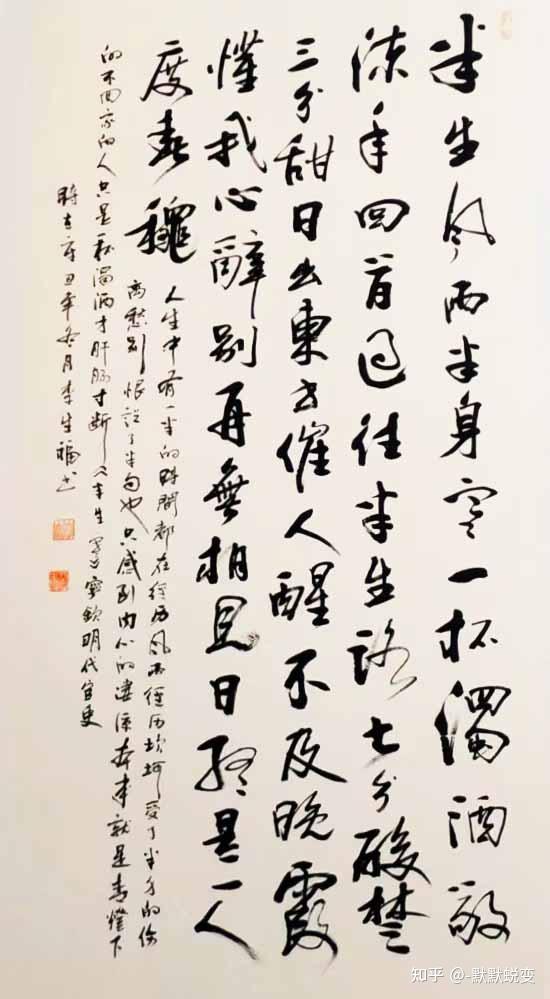 半生风雨半身寒一杯濁酒敬
流年回首过往半生路七分酸楚
三分甜日出東方催人醒不及晚霞
懂我心辭别再無相見日終是一人
度春穐
人生中有一半的時間都在经历风雨经历坎坷受了半身的伤
离愁别恨說了半句也只感到内心的凄凉本来就是青燈下
的不回家的人只是一杯濁酒才肝肠寸断 半生 明代官吏
時在辛丑年冬月李生福书
知乎 @-默默蜕变